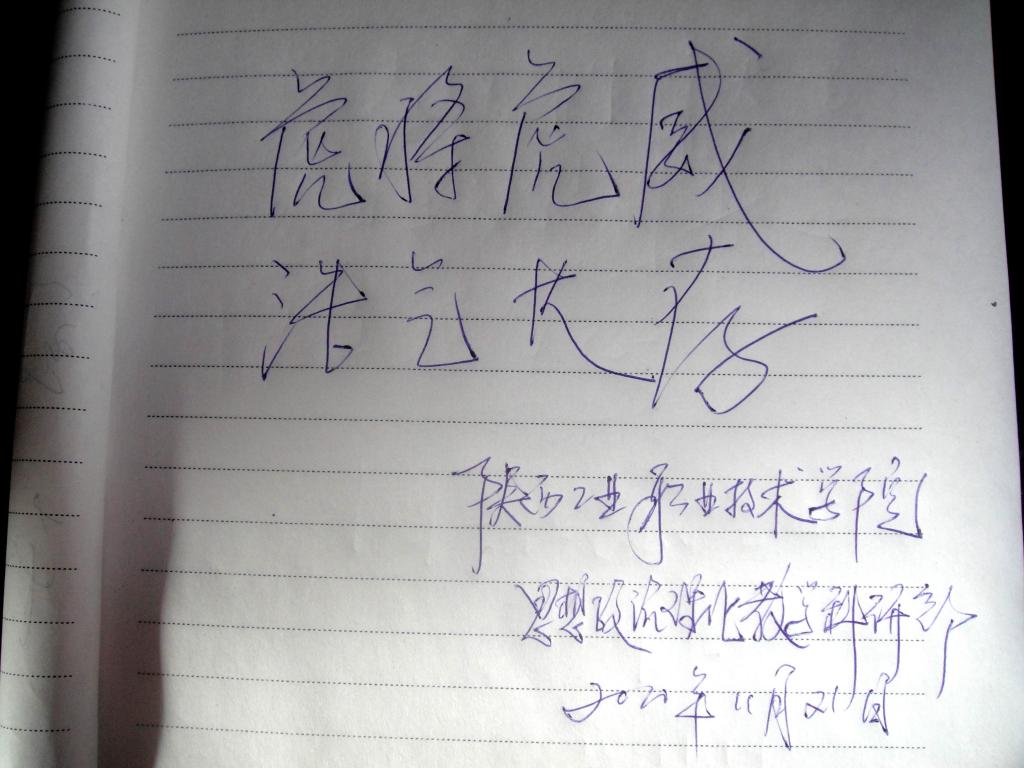 虎将虎威
浩气大存
陕西工业职业技术学院
思想政治理论课教学科研部
2021年11月21日